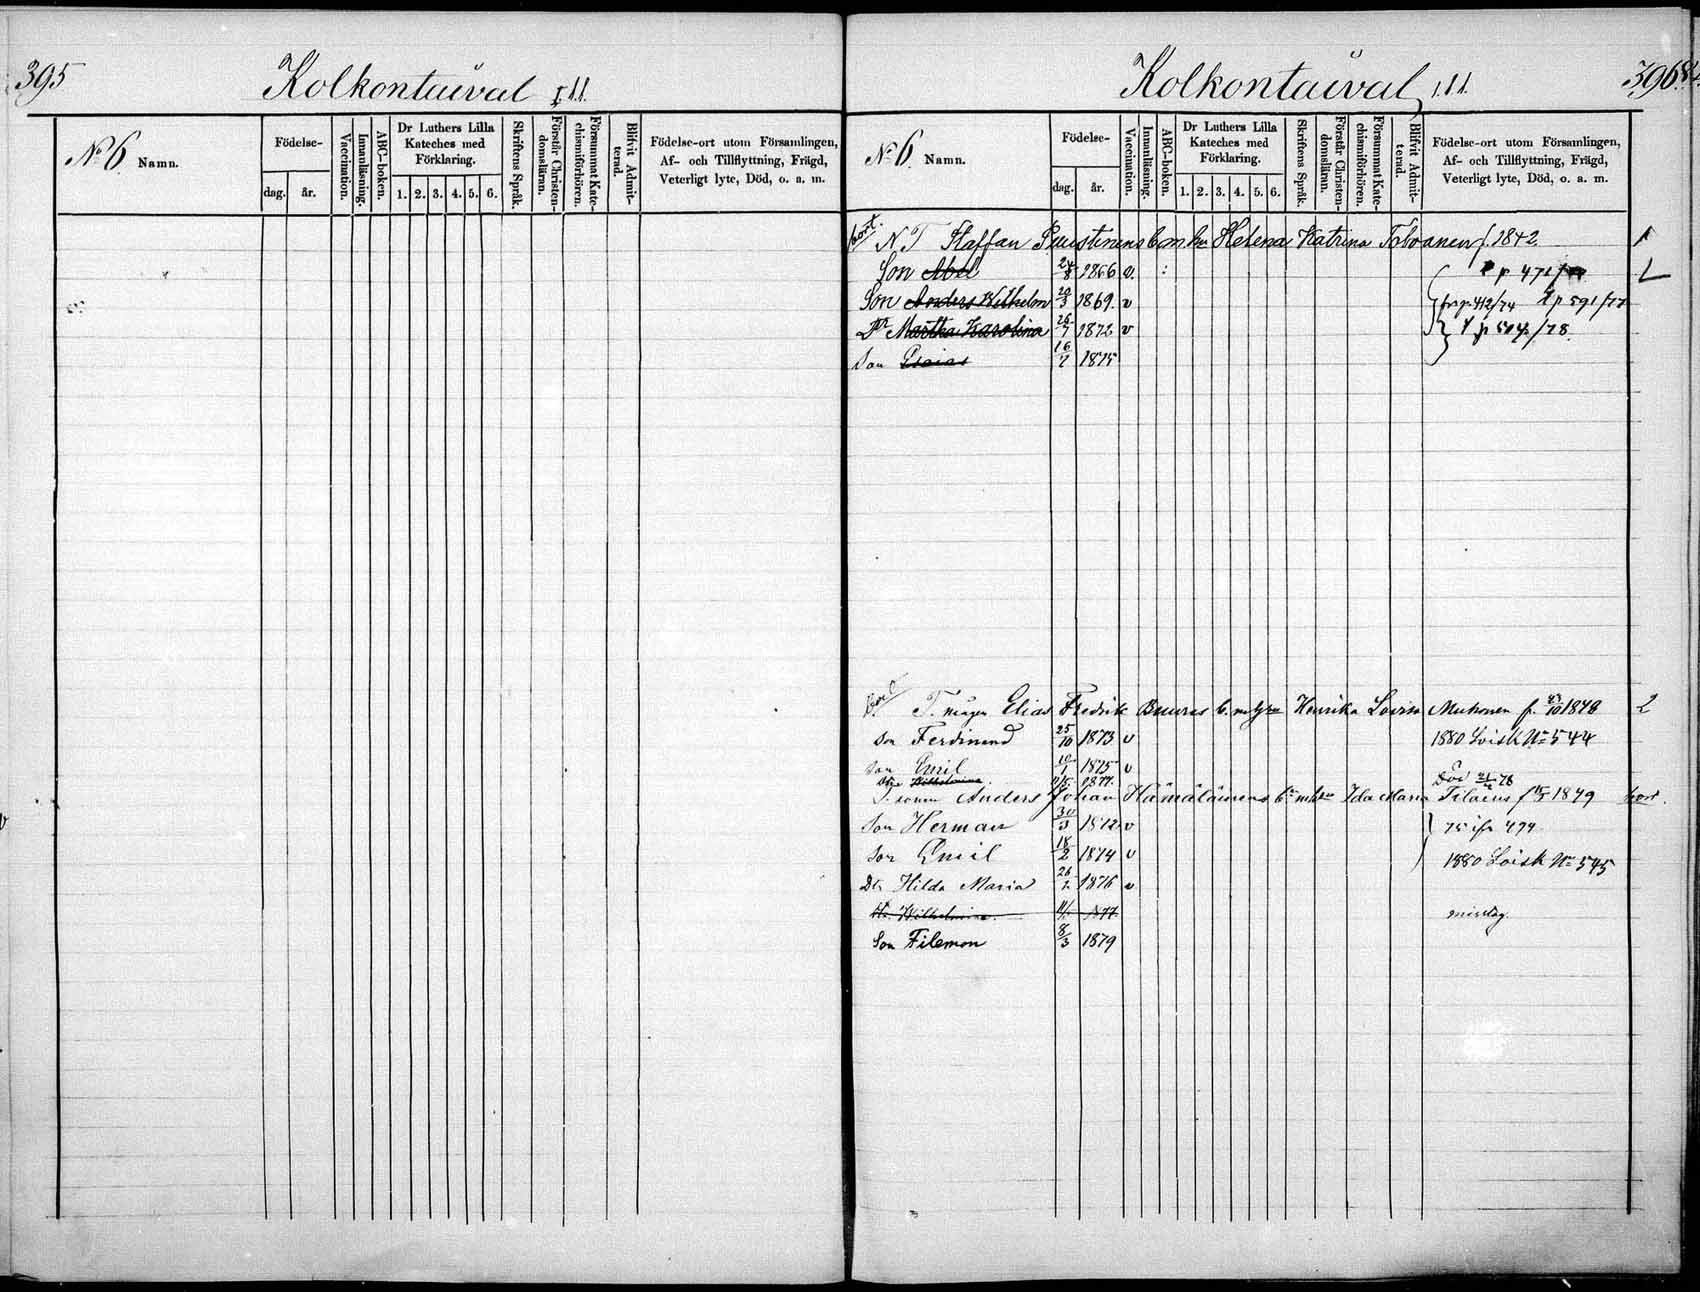 395
Kolkontaival
No 6. Namn.
Födelse-
dag. år.
Vaccination.
Innanläsning.
ABC-boken.
Dr Luthers Lilla Kateches med Förklaring.
1. 2. 3. 4. 5. 6.
Skriftens Språk.
Förstår Christendomsläran.
Försummat Katechismiförhören.
Blifvit Admitterad.
Födelse-ort utom Församlingen,
Af- och Tillflyttning, Frägd,
Veterligt lyte, Död, o. a. m.
Kolkontaival
396
No 6. Namn.
Födelse-
dag. år.
Vaccination.
Innanläsning.
ABC-boken.
Dr Luthers Lilla Kateches med Förklaring.
1. 2. 3. 4. 5. 6.
Skriftens Språk.
Förstår Christendomsläran.
Försummat Katechismiförhören.
Blifvit Admitterad.
Födelse-ort utom Församlingen,
Af- och Tillflyttning, Frägd,
Veterligt lyte, Död, o. a. m.
bort. Staffan Puustinens Helena Katrina Tolvanen f. 1842. 1
Son Abel 24/8 1866 v
Son Anders Wilhelm 20/3 1869. v 412/74 p 591/77
Dr Martha Karolina 26/7 1872 v /78.
Son Esaias 16/7 1875
bort T. Elias Fredrik Buures Henrika Lovisa Muhonen f. 23/10 1848 2
Son Ferdinand 25/10 1873 v 1880 Loisk No 544
Son Emil 10/1 1875 v
Dr Wilhelmina 1877. Död 78
Anders Johan Hämäläinens Ida Maria f 1849 bort.
Son Herman 30/3 1872 v 75 ifr 494
Son Emil 18/2 1874 v 1880 Loisk No 545
Dr Hilda Maria 26/2 1876 v
Dr Wilhelmina 1877 misstag.
Son Filemon 8/3 1879